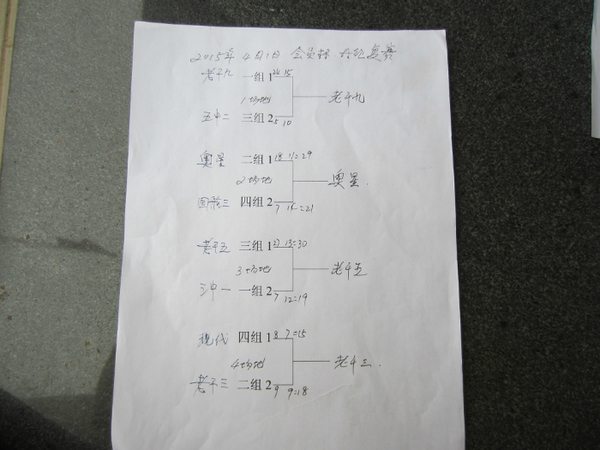 2015年4月1日 会员杯 复赛
老干九 一组1 15
1场地 老干九
五中二 三组2 5 10
奥星 二组1 18 =29
2场地 奥星
四组2 7 =21
老干五 三组1 13=30
3场地 老干五
三中一 一组2 7 12=19
现代 四组1 8 7=15
4场地 老干三
老干三 二组2 9 9=18